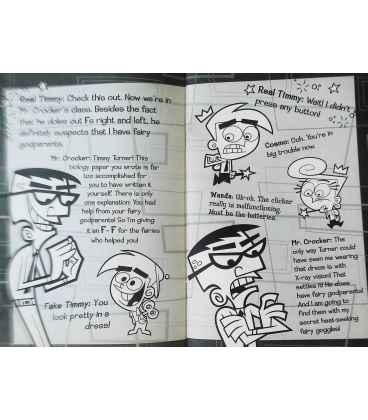 Real Timmy: Check this out. Now we're in
Mr. Crocker's class. Besides the fact
that he doles out Fs right and left, he
definitely suspects that I have fairy
godparents.
Mr. Crocker: Timmy Turner! This
biology paper you wrote is far
too accomplished for
you to have written it
yourself. There is only
one explanation: You had
help from your fairy
godparents! So I'm giving
it an F- F for the fairies
who helped you!
Fake Timmy: You
look pretty in a
dress!
Real Timmy: Wait! I didn't
press any button!
Cosmo: Ooh. You're in
big trouble now.
Wanda: Uh-oh. The clicker
really is malfunctioning.
Must be the batteries.
Mr. Crocker: The
only way Turner could
have seen me wearing
that dress is with
X-ray vision! That
settles it. He does
have fairy godparents!
And I am going to
find them with my
secret heat-seeking
fairy goggles!